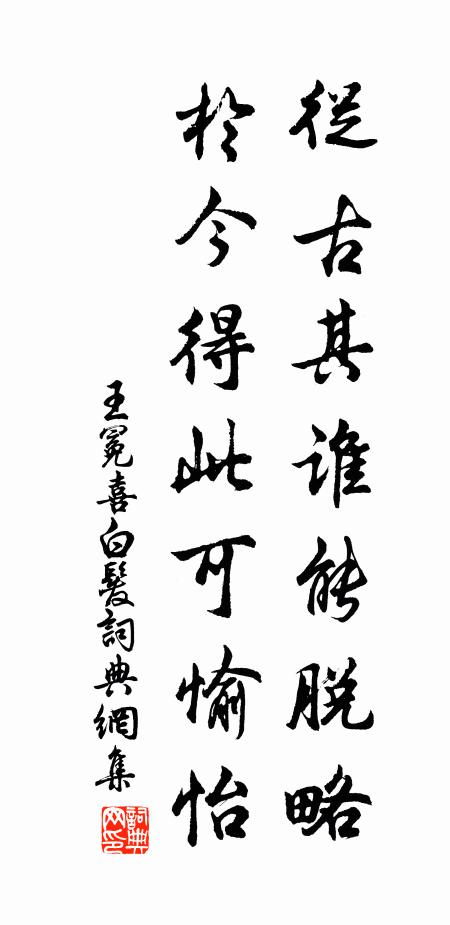 從古其誰能脫略
於今得此可愉怡
王冕喜白髮詞典網集
詞典网印